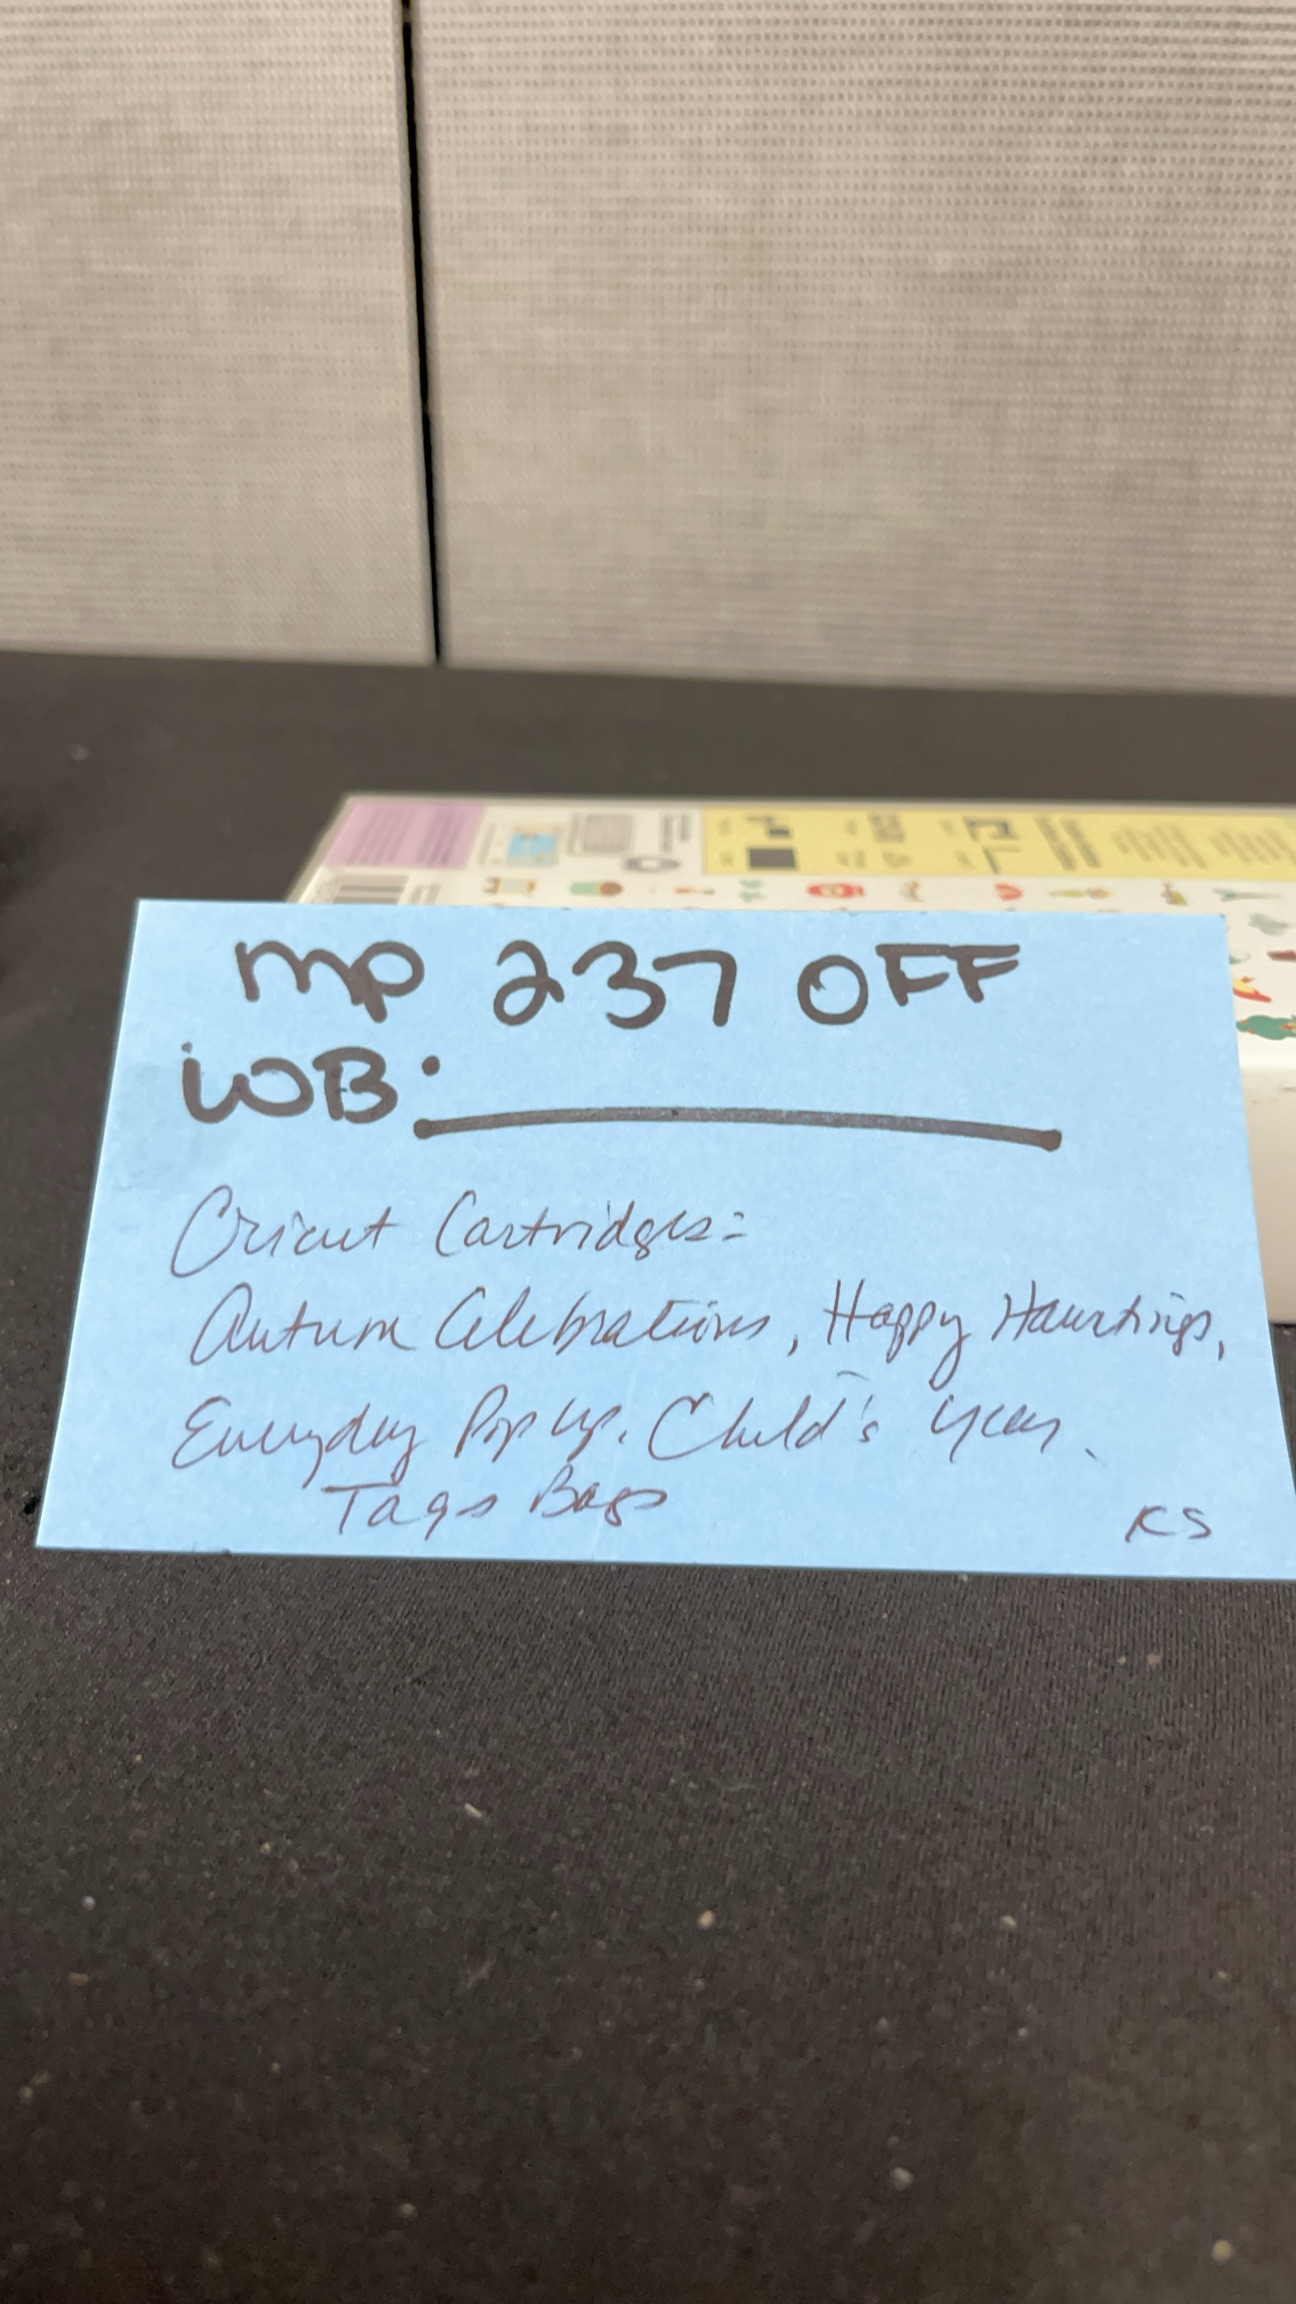 MP 237 OFF
WB:
Cricut Cartridges:
Autum Celebrations, Happy Hauntings,
Everyday Pop Up. Child's Year.
Tags Bags
KS